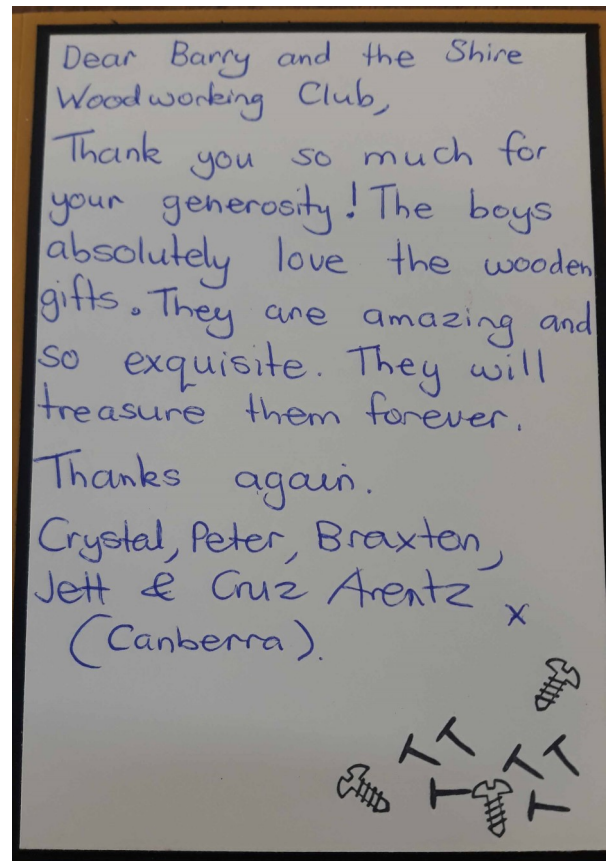 Dear Barry and the Shire
Woodworking Club,
Thank you so much for
your generosity! The boys
absolutely love the wooden
gifts. They are amazing and
so exquisite. They will
treasure them forever.
Thanks again.
Crystal, Peter, Braxton,
Jett & Cruz Arentz x
(Canberra).